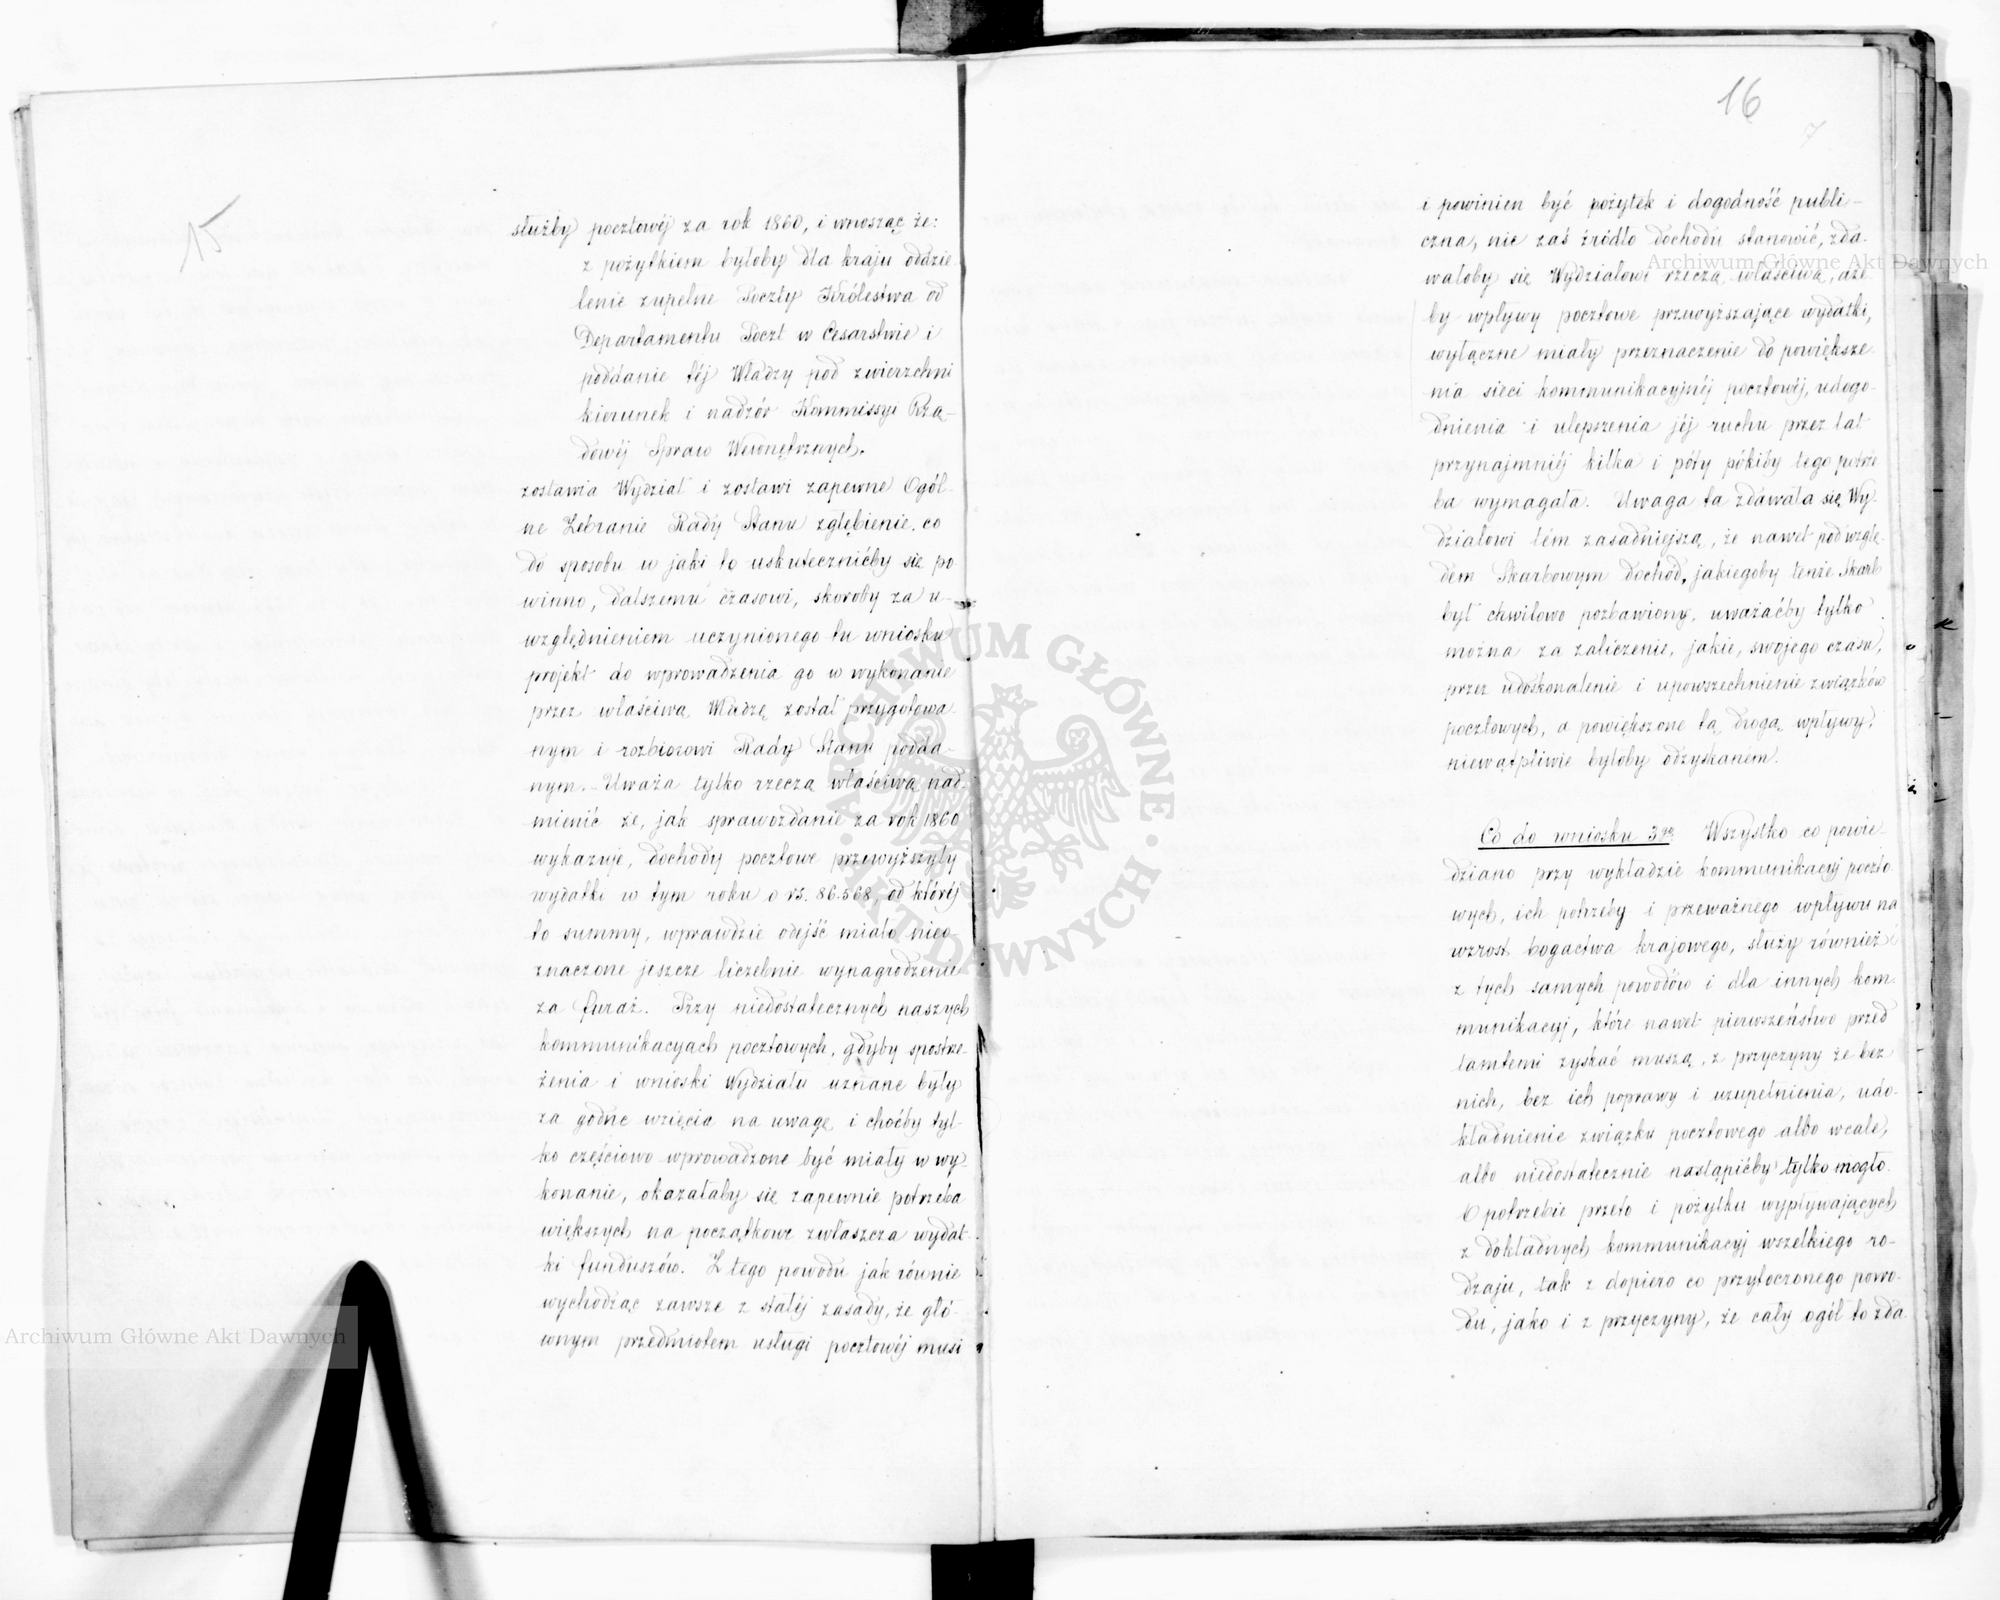 15
służby pocztowéj za rok 1860, i wnosząc że:
z pożytkiem byłoby dla kraju oddzie
lenie zupełne Poczty Królestwa od
Departamentu Poczt w Cesarstwie i
poddanie téj Władzy pod zwierzchni
kierunek i nadzór Kommissyi Rzą-
dowéj Spraw Wewnętrznych.
zostawia Wydział i zostawi zapewne Ogól-
ne Zebranie Rady Stanu zgłębienie, co
do sposobu w jaki to uskutecznićby się po
winno, dalszemu czasowi, skoroby za u-
względnieniem uczynionego tu wniosku
projekt do wprowadzenia go w wykonanie
przez właściwą Władzę został przygotowa
nym i rozbiorowi Rady Stanu podda-
nym. - Uważa tylko rzeczą właściwą nad-
mienić że, jak sprawozdanie za rok 1860
wykazuje, dochody pocztowe przewyższyły
wydatki w tym roku o rs. 86.568, od któréj
to summy, wprawdzie odejść miało nieo-
znaczone jeszcze liczebnie wynagrodzenie
za furaż. Przy niedostatecznych naszych
kommunikacyach pocztowych, gdyby spostrze-
żenia i wnioski Wydziału uznane były
za godne wzięcia na uwagę i choćby tyl-
ko częściowo wprowadzone być miały w wy-
konanie, okazałaby się zapewnie potrzeba
większych na początkowe zwłaszcza wydat-
ki funduszów. Z tego powodu jak równie
wychodząc zawsze z stałéj zasady, że głó-
wnym przedmiotem usługi pocztowéj musi
16
7
i powinien być pożytek i dogodność publi-
czna, nie zaś źródło dochodu stanowić, zda-
wałoby się Wydziałowi rzeczą właściwą, aże
by wpływy pocztowe przewyższające wydatki,
wyłączne miały przeznaczenie do powiększe-
nia sieci kommunikacyjnéj pocztowéj, udogo-
dnienia i ulepszenia jéj ruchu przez lat
przynajmniéj kilka i póty pókiby tego potrze
ba wymagała. Uwaga ta zdawała się Wy-
działowi tém zasadniejszą, że nawet pod wzglę-
dem Skarbowym dochód, jakiegoby tenże Skarb
był chwilowo pozbawiony, uważaćby tylko
można za zaliczenie, jakie, swojego czasu,
przez udoskonalenie i upowszechnienie związków
pocztowych, a powiększone tą drogą wpływy,
niewątpliwie byłoby odzyskaném.
Co do wniosku 3go. Wszystko co powie-
dziano przy wykładzie kommunikacyj poczto
wych, ich potrzeby i przeważnego wpływu na
wzrost bogactwa krajowego, służy również i
z tych samych powodów i dla innych kom-
munikacyj, które nawet pierwszeństwo przed
tamtemi zyskać muszą, z przyczyny że bez
nich, bez ich poprawy i uzupełnienia, udo-
kładnienie związku pocztowego albo wcale,
albo niedostatecznie nastąpićby tylko mogło.
O potrzebie przeto i pożytku wypływających
z dokładnych kommunikacyj wszelkiego ro-
dzaju, tak z dopiero co przytoczonego powo-
du, jako i z przyczyny, że cały ogół to zda
Archiwum Główne Akt Dawnych
Archiwum Główne Akt Dawnych
ARCHIWUM GŁÓWNE · AKT DAWNYCH ·